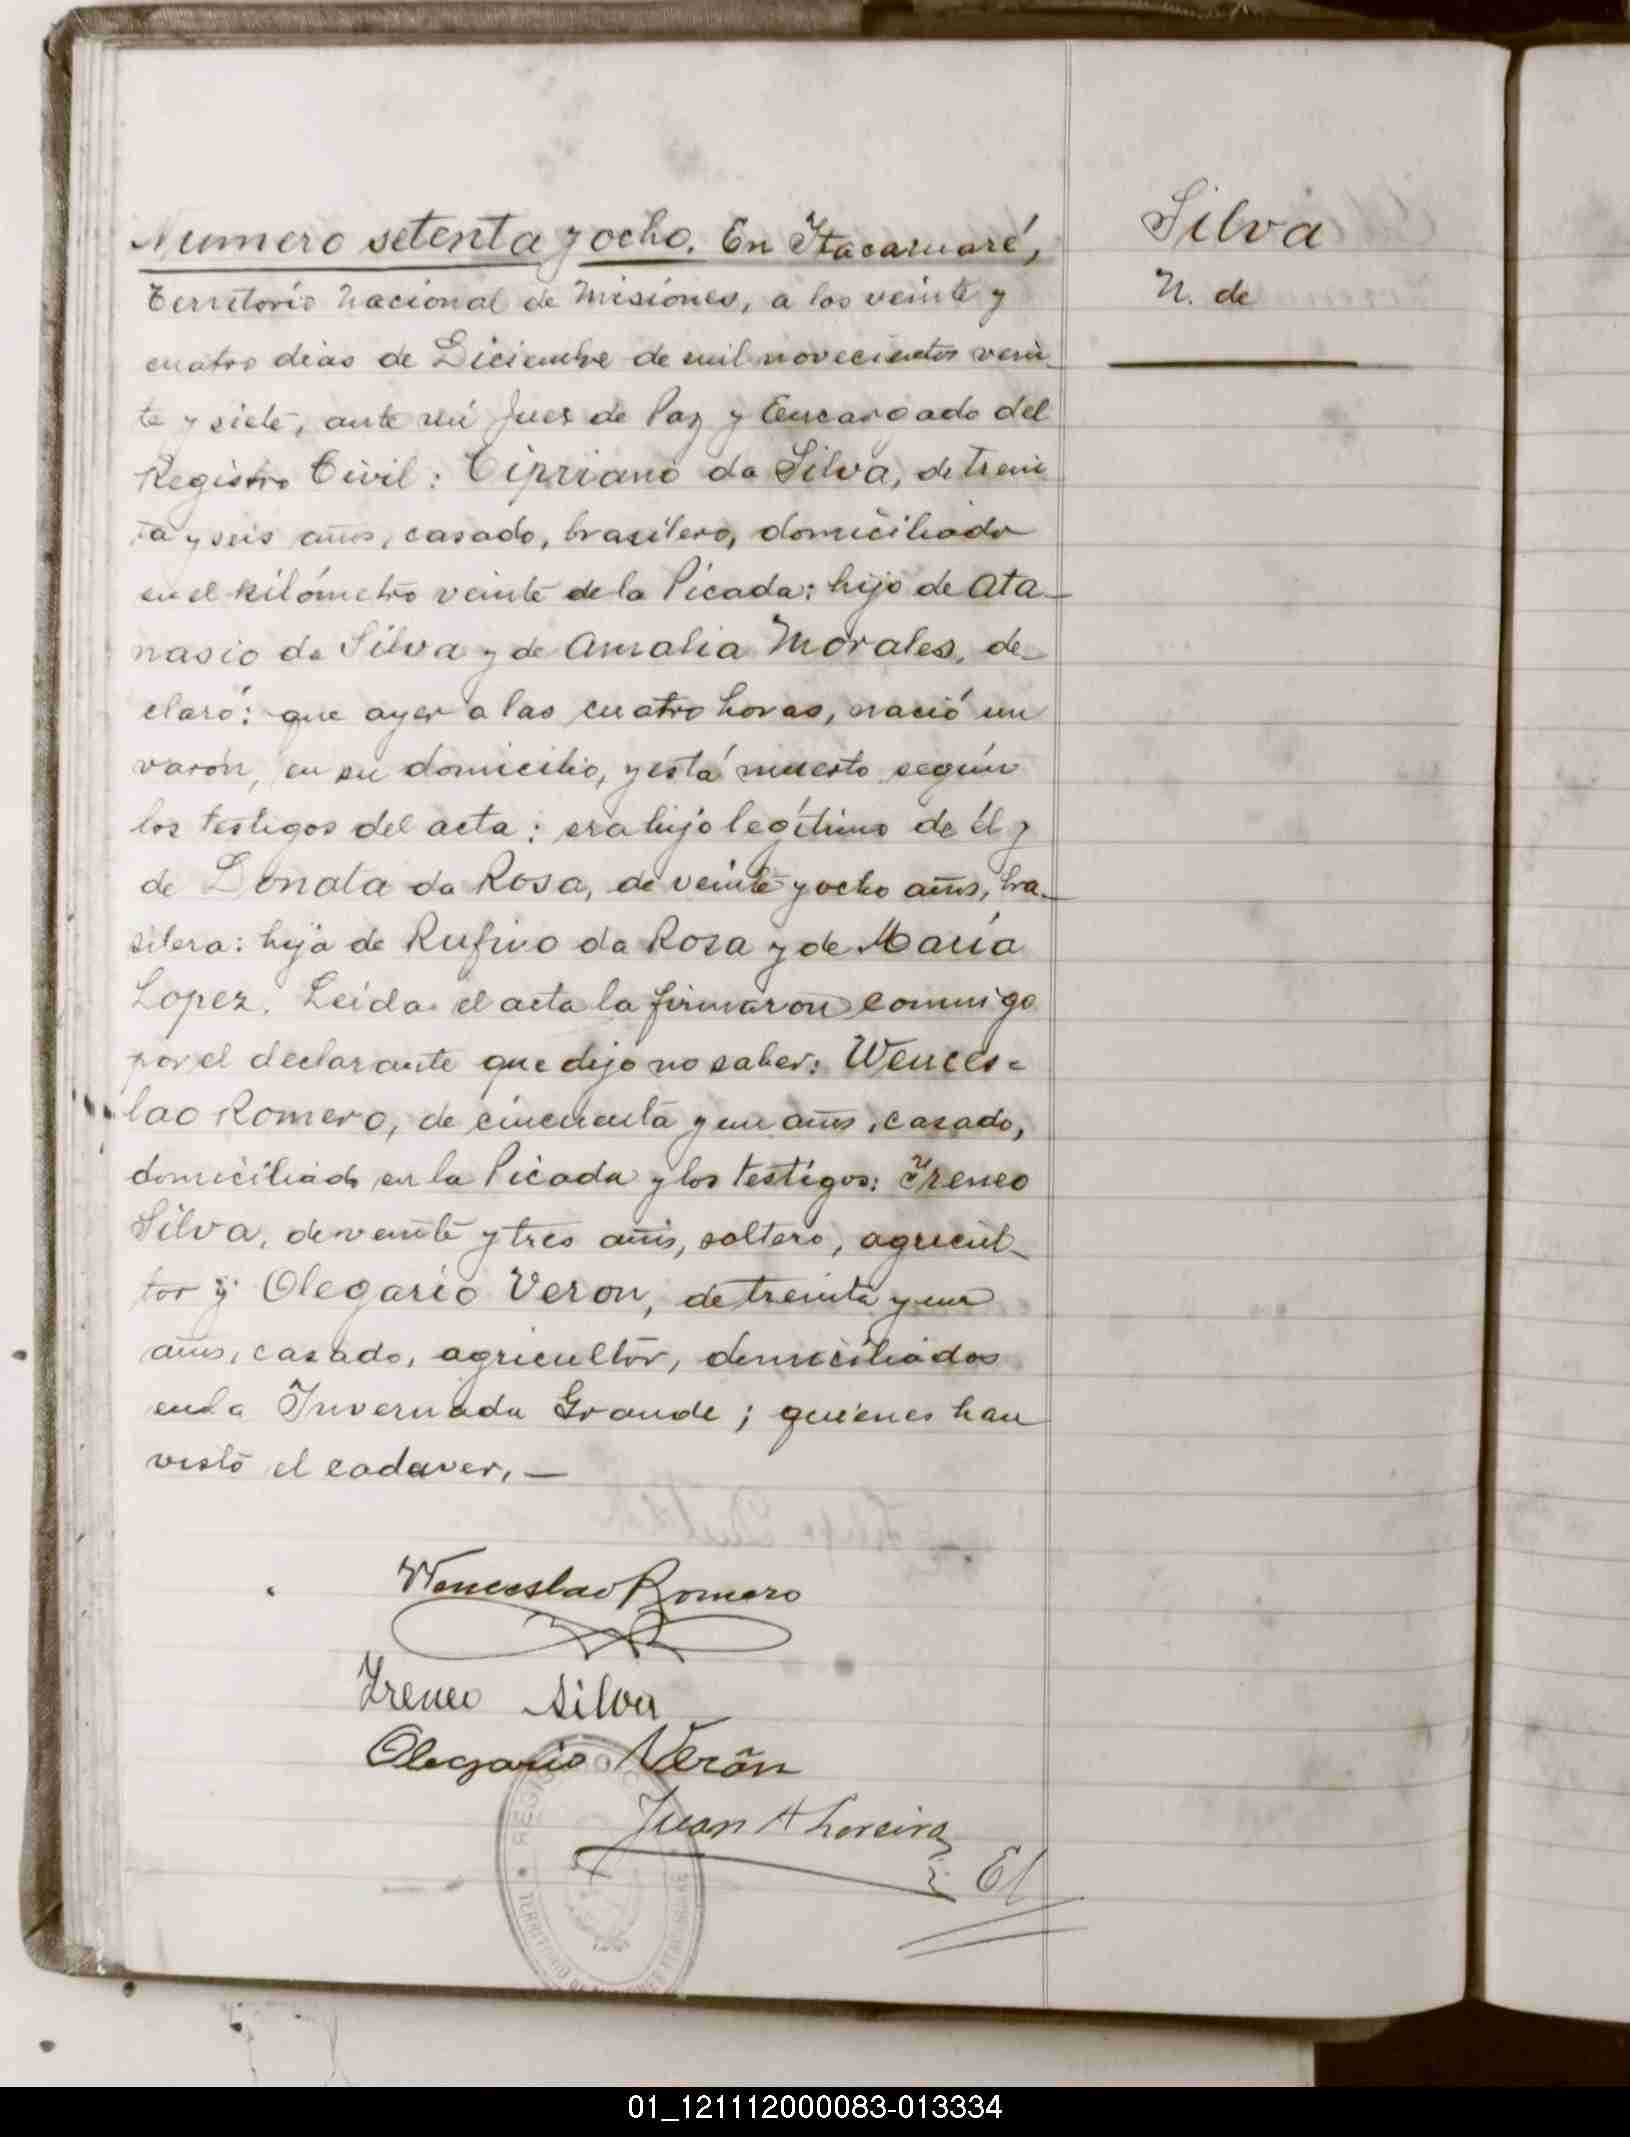 Silva
N. de
Numero setenta y ocho. En Itacaruaré,
Territorio Nacional de Misiones, a los veinte y
cuatro dias de Diciembre de mil novecientos vein-
te y siete, ante mí Juez de Paz y Encargado del
Registro Civil: Cipriano da Silva, de trein
ta y seis años, casado, brasilero, domiciliado
en el kilómetro veinte de la Picada: hijo de Ata-
nasio da Silva y de Amalia Morales, de-
claró: que ayer a las cuatro horas, nació un
varón, en su domicilio, y está muerto según
los testigos del acta: era hijo legítimo de él y
de Donata da Rosa, de veinte y ocho años, bra-
silera: hija de Rufino da Rosa y de María
Lopez. Leida el acta la firmaron conmigo
por el declarante que dijo no saber: Wences=
lao Romero, de cincuenta y un años, casado,
domiciliado en la Picada y los testigos: Ireneo
Silva, de veinte y tres años, soltero, agricul-
tor y Olegario Veron, de treinta y un
años, casado, agricultor, domiciliados
en la Invernada Grande; quienes han
visto el cadaver. —
Wenceslao Romero
Ireneo Silva
Olegario Verón
Juan A
REGISTRO CI
TERRITORIO DE MISIONES ITACARUARE
01_121112000083-013334